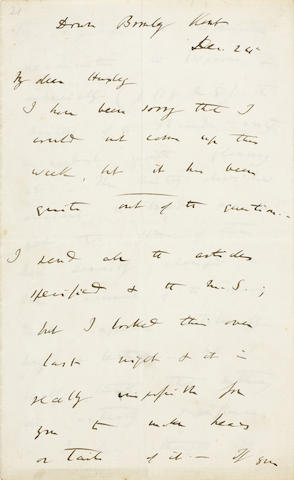 21
Down Bromley Kent
Dec. 24th
My dear Huxley
I have been sorry that I
could not come up this
week, but it has been
quite out of the question.—
I send all the articles
specified & the M.S.;
but I looked this over
last night & it is
really impossible for
you to make heads
or tails of it.— If you